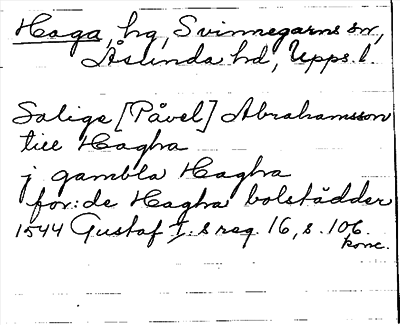 Haga, hg, Svinnegarns sn,
Åsunda hd, Upps. l.
Salige [Påvel] Abrahamsson
till Hagha
j gambla Hagha
for:de Hagha bolstädder
1544 Gustaf I:s reg. 16, s. 106.
konc.